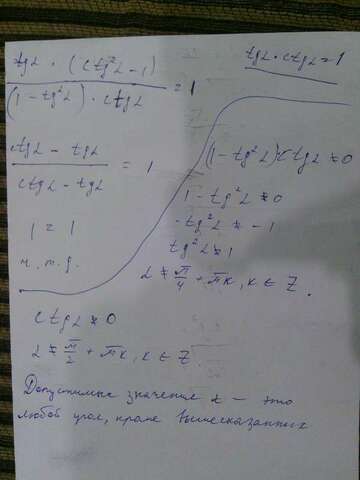 tgα · (ctg²α - 1)
(1 - tg²α) · ctgα
= 1
tgα · ctgα = 1
ctgα - tgα
ctgα - tgα
= 1
1 = 1
ч. т. д.
(1 - tg²α) ctgα ≠ 0
1 - tg²α ≠ 0
- tg²α ≠ -1
tg²α ≠ 1
α ≠ π/4 + πk, k ∈ Z.
ctgα ≠ 0
α ≠ π/2 + πk, k ∈ Z.
Допустимые значение α — это
любой угол, кроме вышесказанных